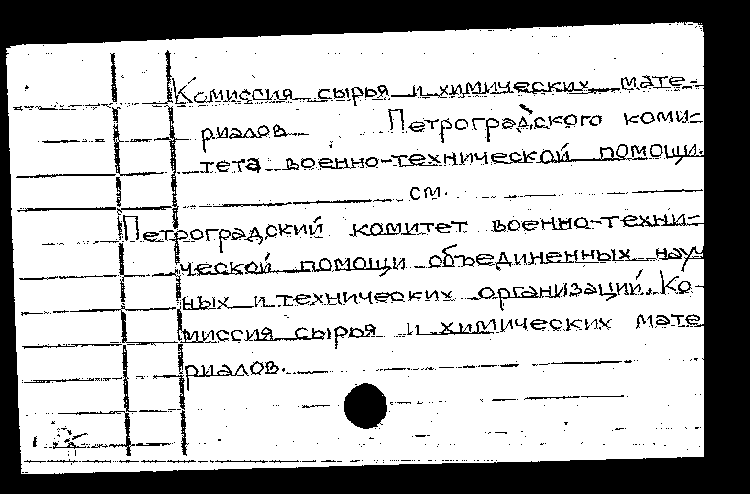 Комиссия сырья и химических мате-
риалов Петроградского коми-
тета военно-технической помощи.
см.
Петроградский комитет военно-техни-
ческой помощи объединенных науч
ных и технических организаций. Ко-
миссия сырья и химических мате
риалов.